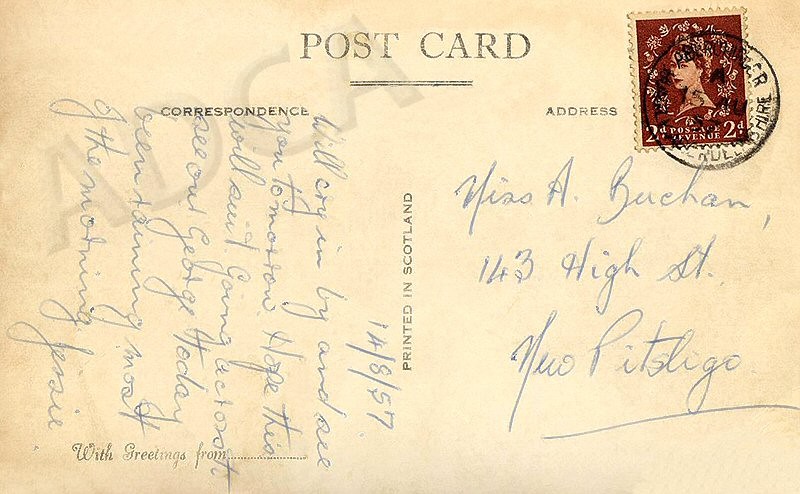 POST CARD
CORRESPONDENCE
ADDRESS
2d POSTAGE REVENUE 2d
PRINTED IN SCOTLAND
14/8/57
Will cry in by and see
you tomorrow. Hope this
will suit. Going across to
see our George today
been raining most
of the morning.
Jessie
Miss A. Buchan,
143 High St.
New Pitsligo
With Greetings from
ADCA